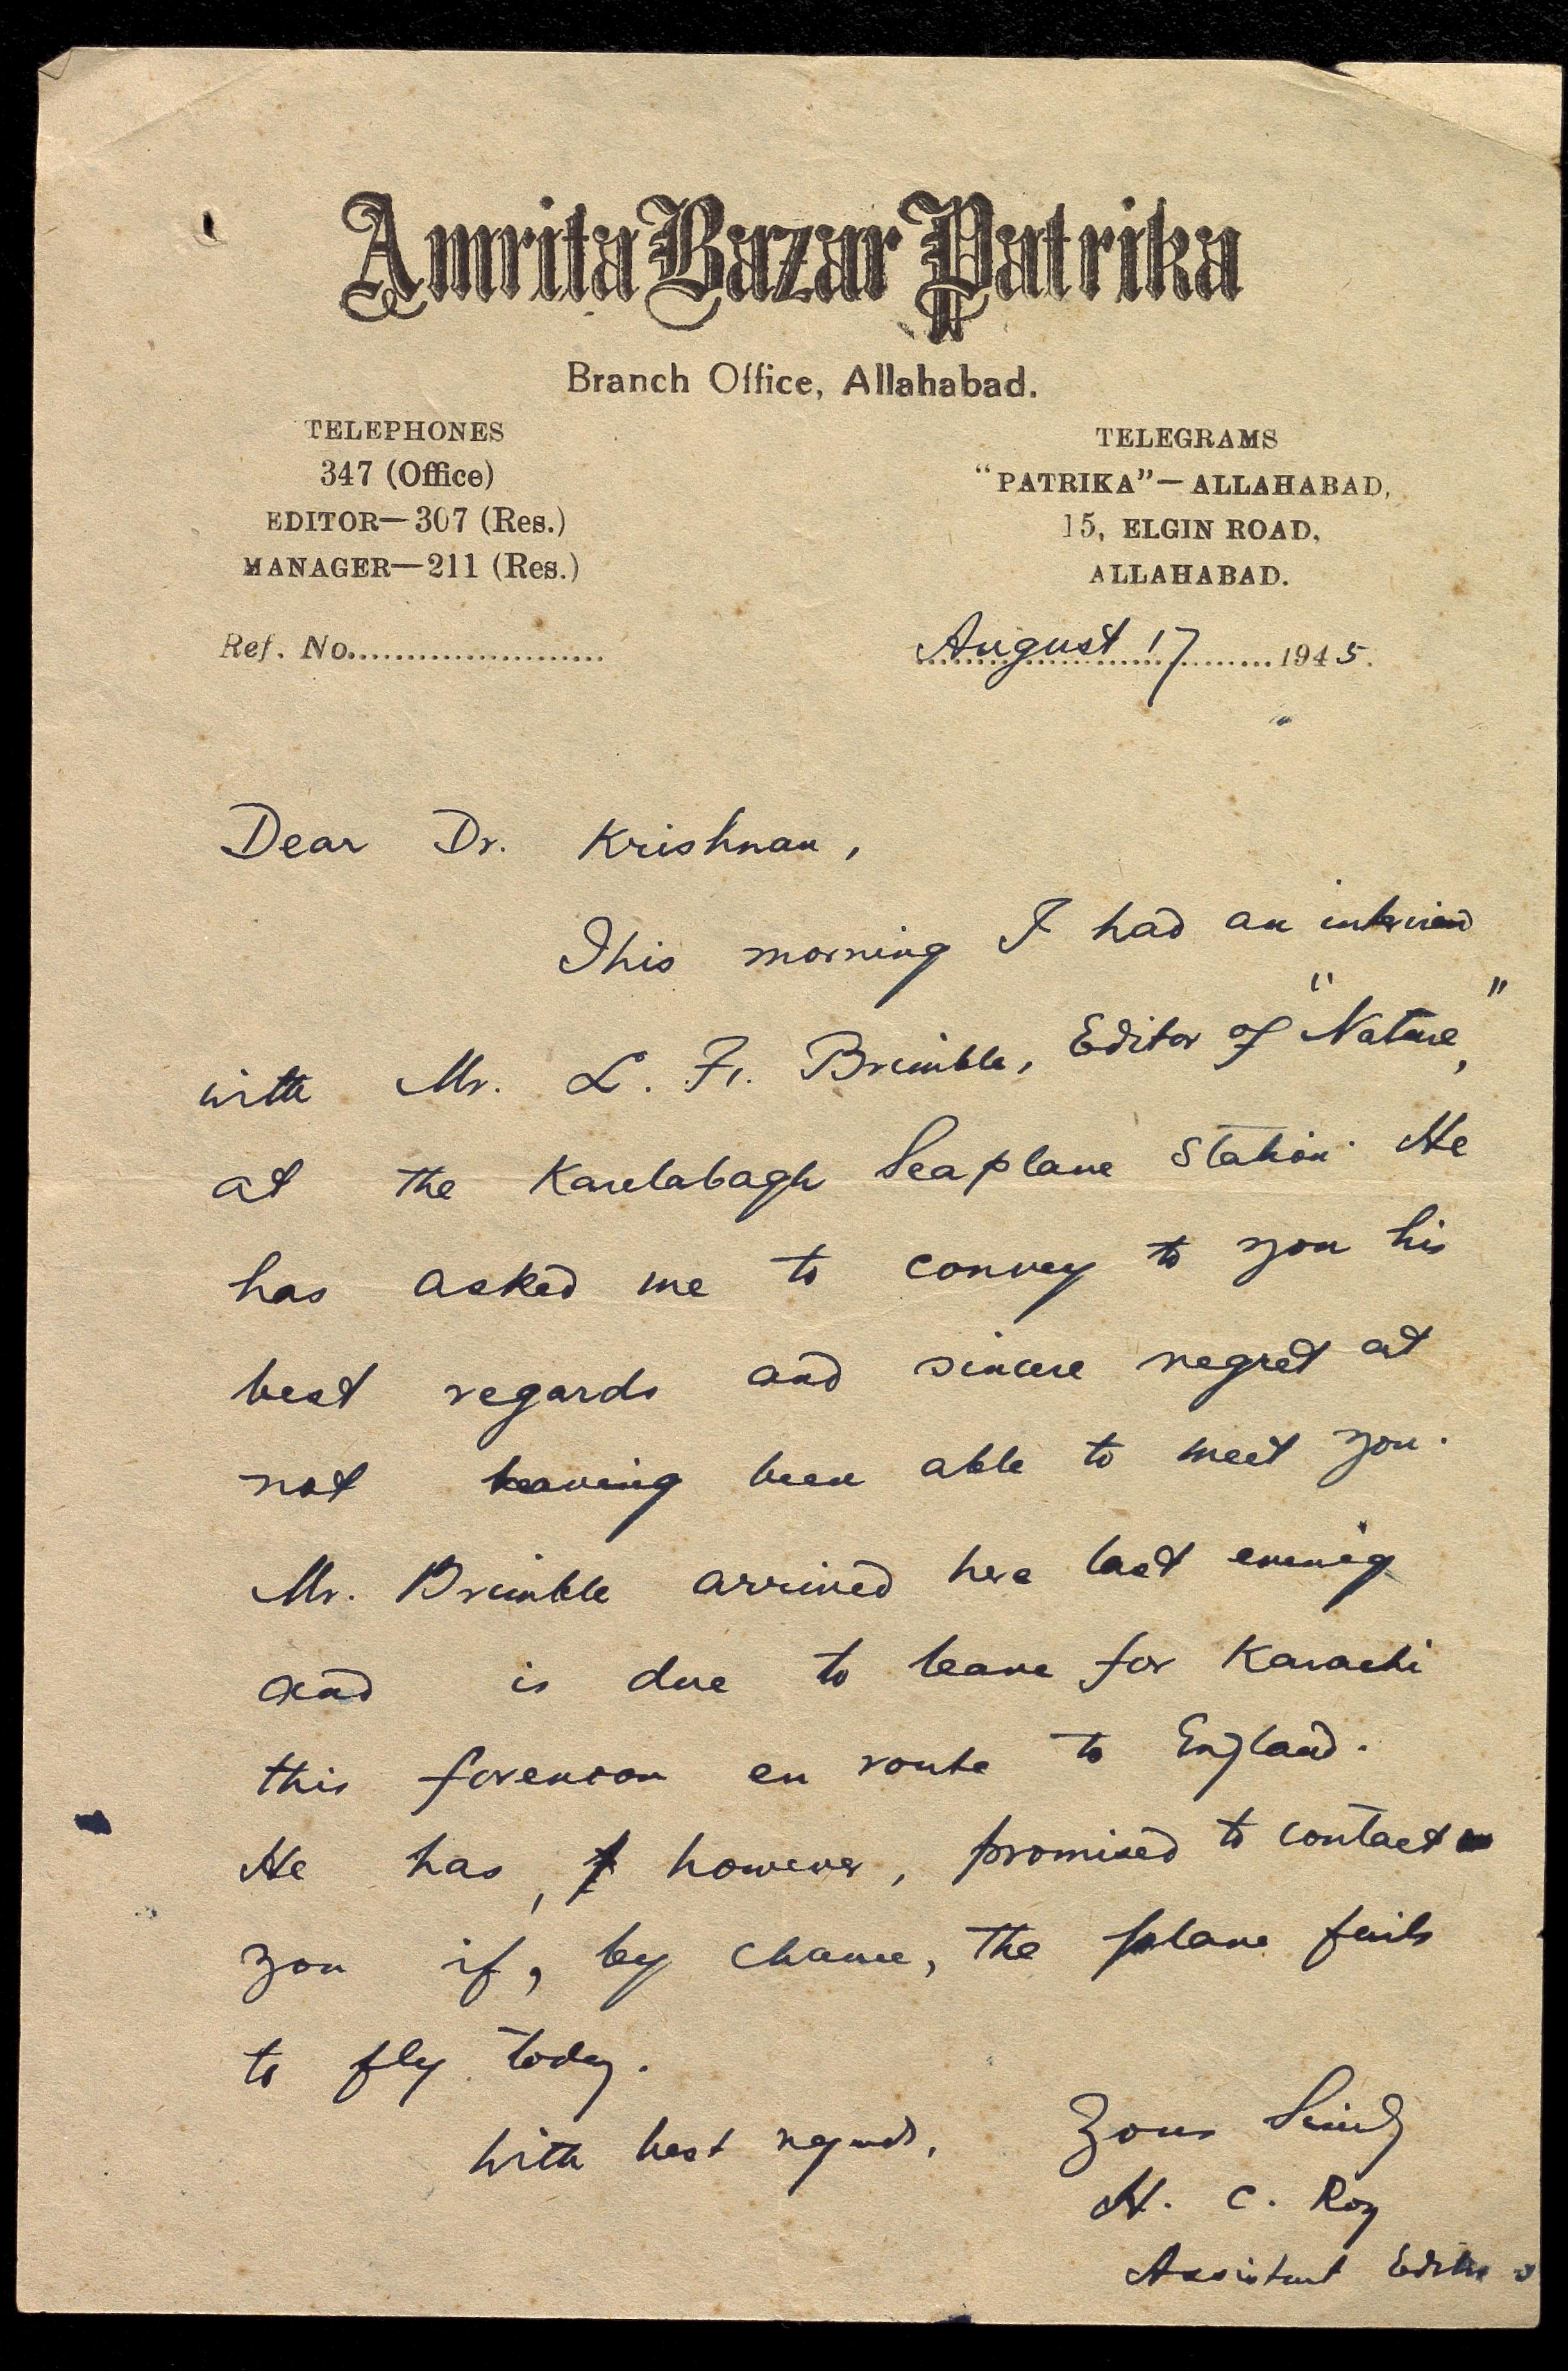 Amrita Bazar Patrika
Branch Office, Allahabad.
TELEPHONES
347 (Office)
EDITOR—307 (Res.)
MANAGER—211 (Res.)
TELEGRAMS
"PATRIKA"—ALLAHABAD,
15, ELGIN ROAD,
ALLAHABAD.
Ref. No......................
August 17 1945.
Dear Dr. Krishnan,
This morning I had an interview
with Mr. L. F. Brimble, Editor of "Nature,"
at the Karelabagh Seaplane Station. He
has asked me to convey to you his
best regards and sincere regret at
not having been able to meet you.
Mr. Brimble arrived here last evening
and is due to leave for Karachi
this forenoon en route to England.
He has, however, promised to contact
you if, by chance, the plane fails
to fly today.
With best regards,
Yours Sincly
H. C. Roy
Assistant Editor